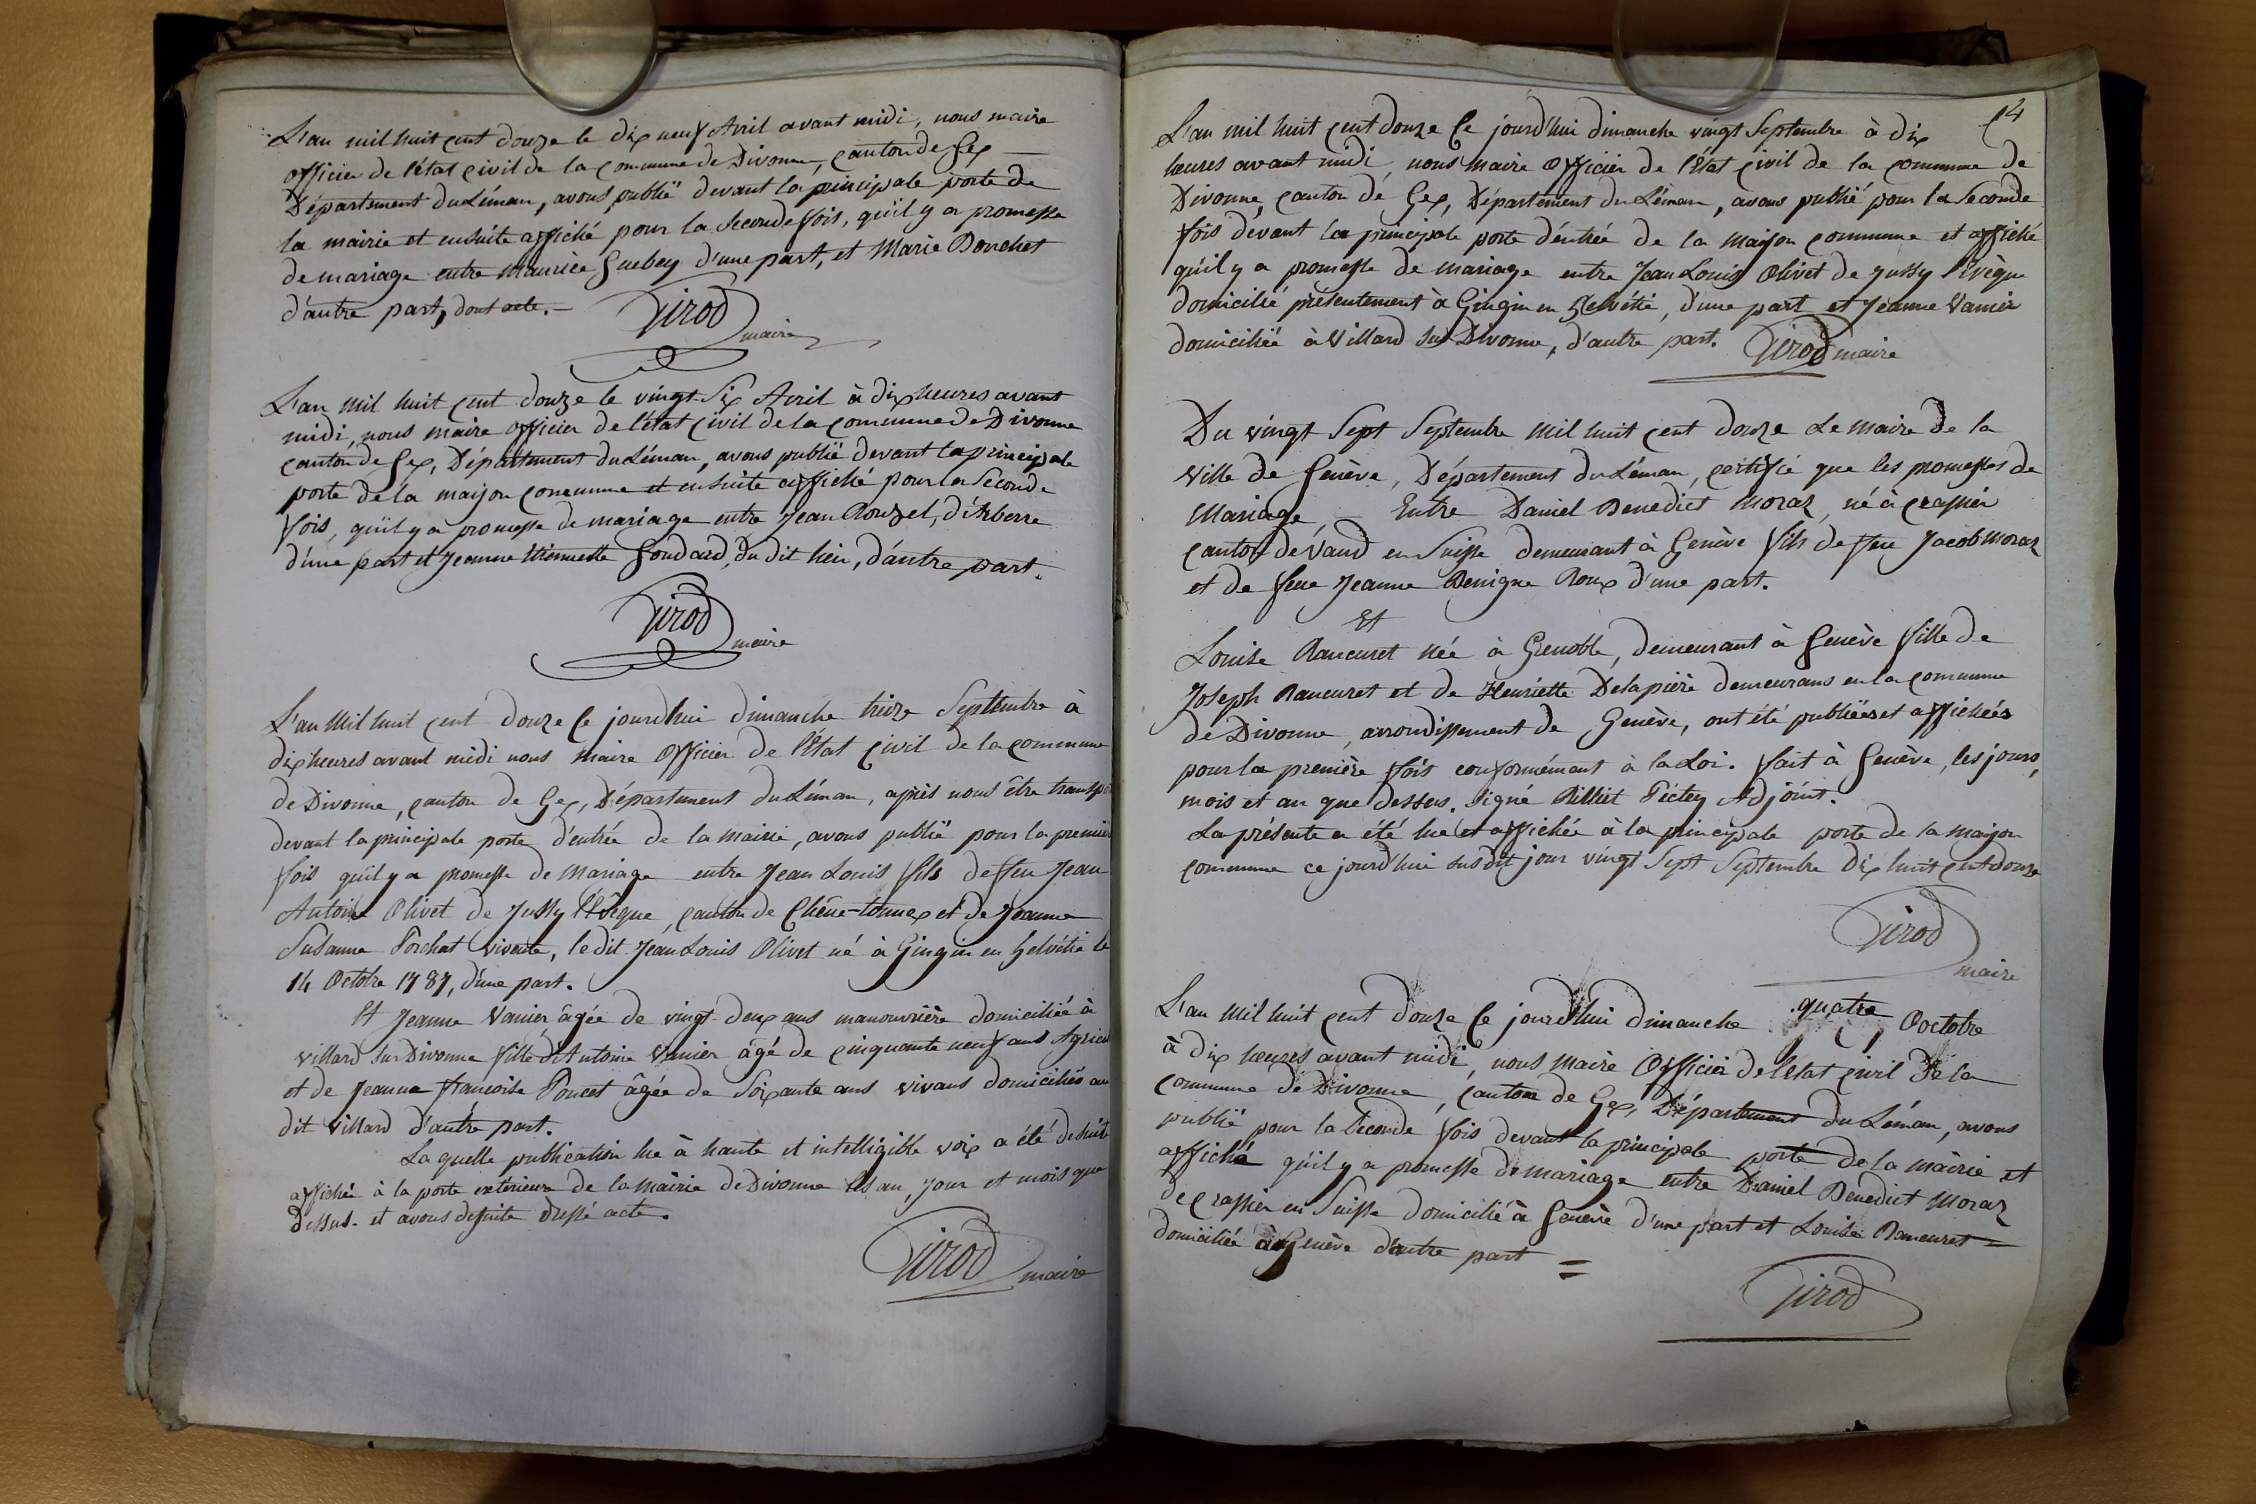 L'an mil huit cent douze le dix neuf Avril avant midi, nous maire
officier de l'état civil de la commune de Divonne, canton de Gex
Département du Léman, avons publié devant la principale porte de
la mairie et ensuite affiché pour la seconde fois, qu'il y a promesse
de mariage entre Maurice Guebey d'une part, et Marie Bouchet
d'autre part, dont acte. —
Girod
maire
L'an mil huit cent douze le vingt Six Avril à dix heures avant
midi, nous maire officier de l'état civil de la commune de Divonne
canton de Gex, Département du Léman, avons publié devant la principale
porte de la maison commune et ensuite affiché pour la Seconde
fois, qu'il y a promesse de mariage entre Jean Rouzet, d'Arberre
d'une part et Jeanne Etiennette Goudard, du dit lieu, d'autre part.
Girod
maire
L'an Mil huit cent douze Ce jourd'hui dimanche treize Septembre à
dix heures avant midi nous maire officier de l'État civil de la commune
de Divonne, canton de Gex, Département du Léman, après nous être transpor
devant la principale porte d'entrée de la mairie, avons publié pour la premiè
fois qu'il y a promesse de Mariage entre Jean Louis fils de feu Jean
Antoine Olivet de Jussy l'Evêque, canton de Chêne-tonnex et de Jeanne
Susanne Porchat vivante, le dit Jean Louis Olivet né à Gingin en helvétie le
14 Octobre 1787, d'une part.
Et Jeanne Vanier âgée de vingt-deux ans manouvrière domiciliée à
villard sur Divonne fille d'Antoine Vanier âgé de cinquante neuf ans Agricu
et de Jeanne françoise Poncet âgée de Soixante ans vivans domiciliés au
dit Villard d'autre part.
La quelle publication lue à haute et intelligible voix a été de suite
affichée à la porte extérieure de la Mairie de Divonne les an, jour et mois que
Dessus. et avons desuite dressé acte.
Girod
maire
14
L'an mil huit cent douze Ce jourd'hui dimanche vingt Septembre à dix
heures avant midi, nous maire Officier de l'État civil de la commune de
Divonne, canton de Gex, Département du Léman, avons publié pour la Seconde
fois devant la principale porte d'entrée de la maison commune et affiché
qu'il y a promesse de mariage entre Jean Louis Olivet de Jussy l'évêque
domicilié présentement à Gingin en helvétie, d'une part et Jeanne Vanier
domiciliée à Villard sus Divonne, d'autre part.
Girod maire
Du vingt Sept Septembre mil huit cent douze Le maire de la
Ville de Genève, Département du Léman, certifie que les promesses de
Mariage, — Entre Daniel Benedict Moraz, né à crassier
canton de Vaud en Suisse demeurant à Genève fils de feu Jacob Moraz
et de feue Jeanne Benigne Roux d'une part.
Et
Louise Rancuret née à Grenoble, demeurant à Genève fille de
Joseph Rancuret et de Henriette Delapière demeurans en la commune
de Divonne, arrondissement de Genève, ont été publiées et affichées
pour la première fois conformément à la Loi. fait à Genève, les jours,
mois et an que dessus. Signé Rilliet Pictey Adjoint.
La présente a été lue et affichée à la principale porte de la maison
commune ce jourd'hui susdit jour vingt Sept Septembre Dix huit cent douze
Girod
maire
L'an Mil huit cent douze Ce jourd'hui dimanche quatre Octobre
à dix heures avant midi, nous Maire Officier de l'État civil de la
commune de Divonne, canton de Gex, Département du Léman, avons
publié pour la Seconde fois devant la principale porte de la mairie et
affiché qu'il y a promesse de mariage entre Daniel Benedict Moraz
de crassier en Suisse domicilié à Genève d'une part et Louise Rancuret =
domiciliée à Genève d'autre part =
Girod